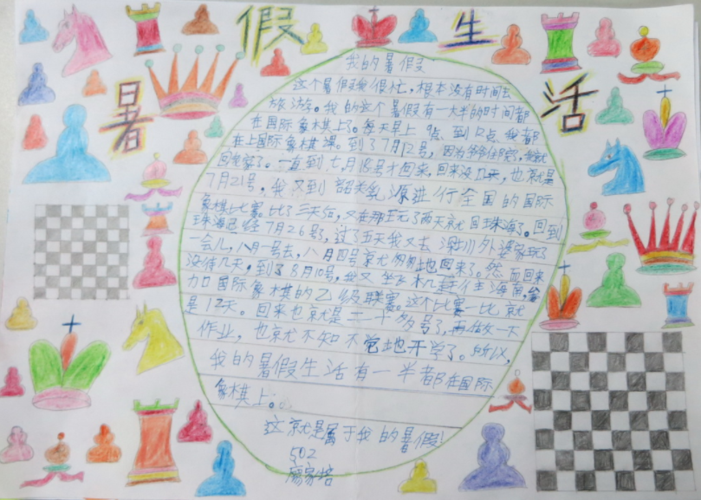 暑假生活
我的暑假
这个暑假我很忙，根本没有时间去
旅游。我的这个暑假有一大半的时间都
在国际象棋上了。每天早上 9点 到 12点 我都
在上国际象棋课。到了7月12号，因为
回来了。一直到七月 号才回来，回来没几天，也就是
7月21号，我又到韶关乳源进行全国的国际
象棋比赛，比了三天后，又在那玩了两天就回珠海了。回到
珠海已经7月26号，过了五天我又去深圳外婆家玩了
一会儿，八月一号去，八月四号就匆匆地回来了。然而回来
没待几天，到了8月10号，我又坐飞机去往海南，参
加国际象棋的乙级联赛。这个比赛一比就
是12天。回来也就是二十多号了，再做一下
作业，也就不知不觉地开学了。所以，
我的暑假生活有一半都在国际
象棋上。
这就是属于我的暑假！
502